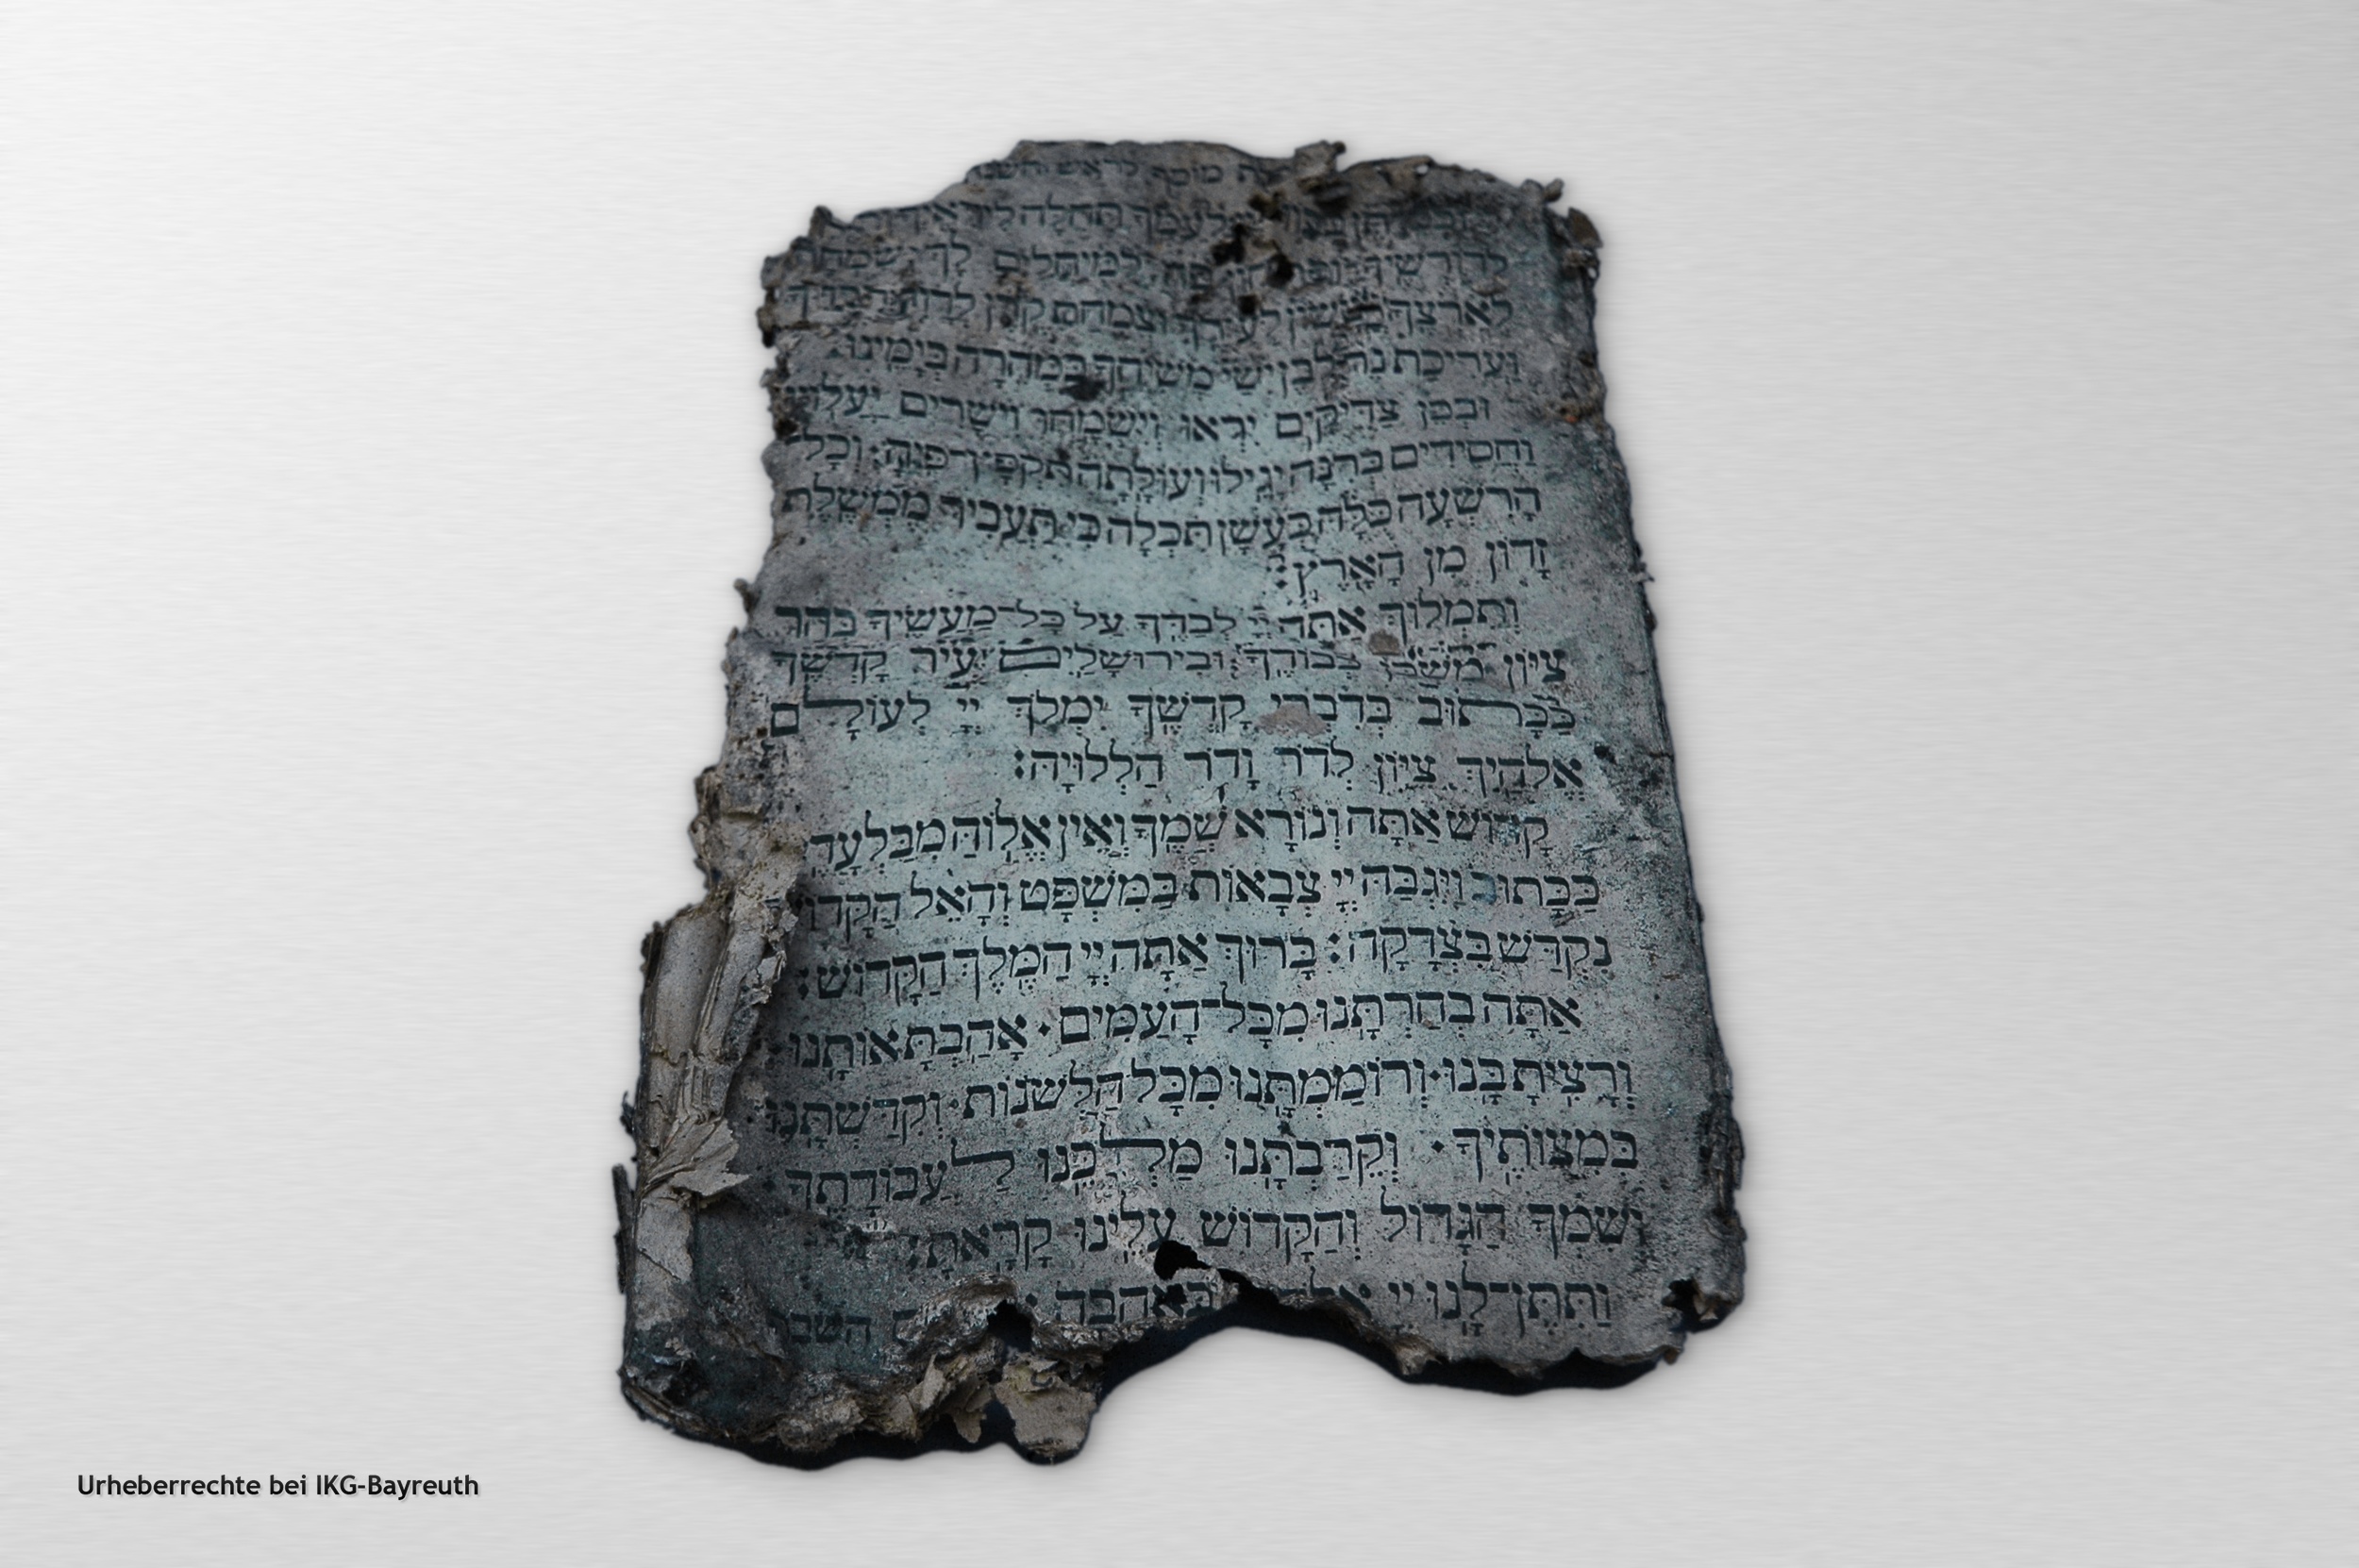 מוסף לראש השנה
לעמך תהלה
למיחלים לך שמחה
לארצך לעירך וצמיחת קרן לדוד עבדך
ועריכת נר לבן ישי משיחך במהרה בימינו.
ובכן צדיקים יראו וישמחו וישרים יעלוזו
וַחֲסִידִים בְּרִנָּה יָגִילוּ וְעוֹלָתָה תִּקְפָּץ־פִּיהָ: וְכָל־
הָרִשְׁעָה כֻּלָּהּ בְּעָשָׁן תִּכְלֶה כִּי תַעֲבִיר מֶמְשֶׁלֶת
זָדוֹן מִן הָאָרֶץ:
וְתִמְלוֹךְ אַתָּה יְיָ לְבַדֶּךָ עַל כָּל־מַעֲשֶׂיךָ בְּהַר
צִיּוֹן מִשְׁכַּן כְּבוֹדֶךָ וּבִירוּשָׁלַיִם עִיר קָדְשֶׁךָ
כַּכָּתוּב בְּדִבְרֵי קָדְשֶׁךָ יִמְלֹךְ יְיָ לְעוֹלָם
אֱלֹהַיִךְ צִיּוֹן לְדֹר וָדֹר הַלְלוּיָהּ:
קָדוֹשׁ אַתָּה וְנוֹרָא שְׁמֶךָ וְאֵין אֱלוֹהַּ מִבַּלְעָדֶ
כַּכָּתוּב וַיִּגְבַּהּ יְיָ צְבָאוֹת בַּמִּשְׁפָּט וְהָאֵל הַקָּדוֹ
נִקְדַּשׁ בִּצְדָקָה: בָּרוּךְ אַתָּה יְיָ הַמֶּלֶךְ הַקָּדוֹשׁ:
אַתָּה בְחַרְתָּנוּ מִכָּל־הָעַמִּים· אָהַבְתָּ אוֹתָנוּ·
וְרָצִיתָ בָּנוּ· וְרוֹמַמְתָּנוּ מִכָּל הַלְּשׁנוֹת· וְקִדַּשְׁתָּנוּ
בְּמִצְוֹתֶיךָ· וְקֵרַבְתָּנוּ מַלְכֵּנוּ לַעֲבוֹדָתֶךָ
וְשִׁמְךָ הַגָּדוֹל וְהַקָּדוֹשׁ עָלֵינוּ קָרָאתָ:
וַתִּתֶּן־לָנוּ יְיָ בְּאַהֲבָה
Urheberrechte bei IKG-Bayreuth